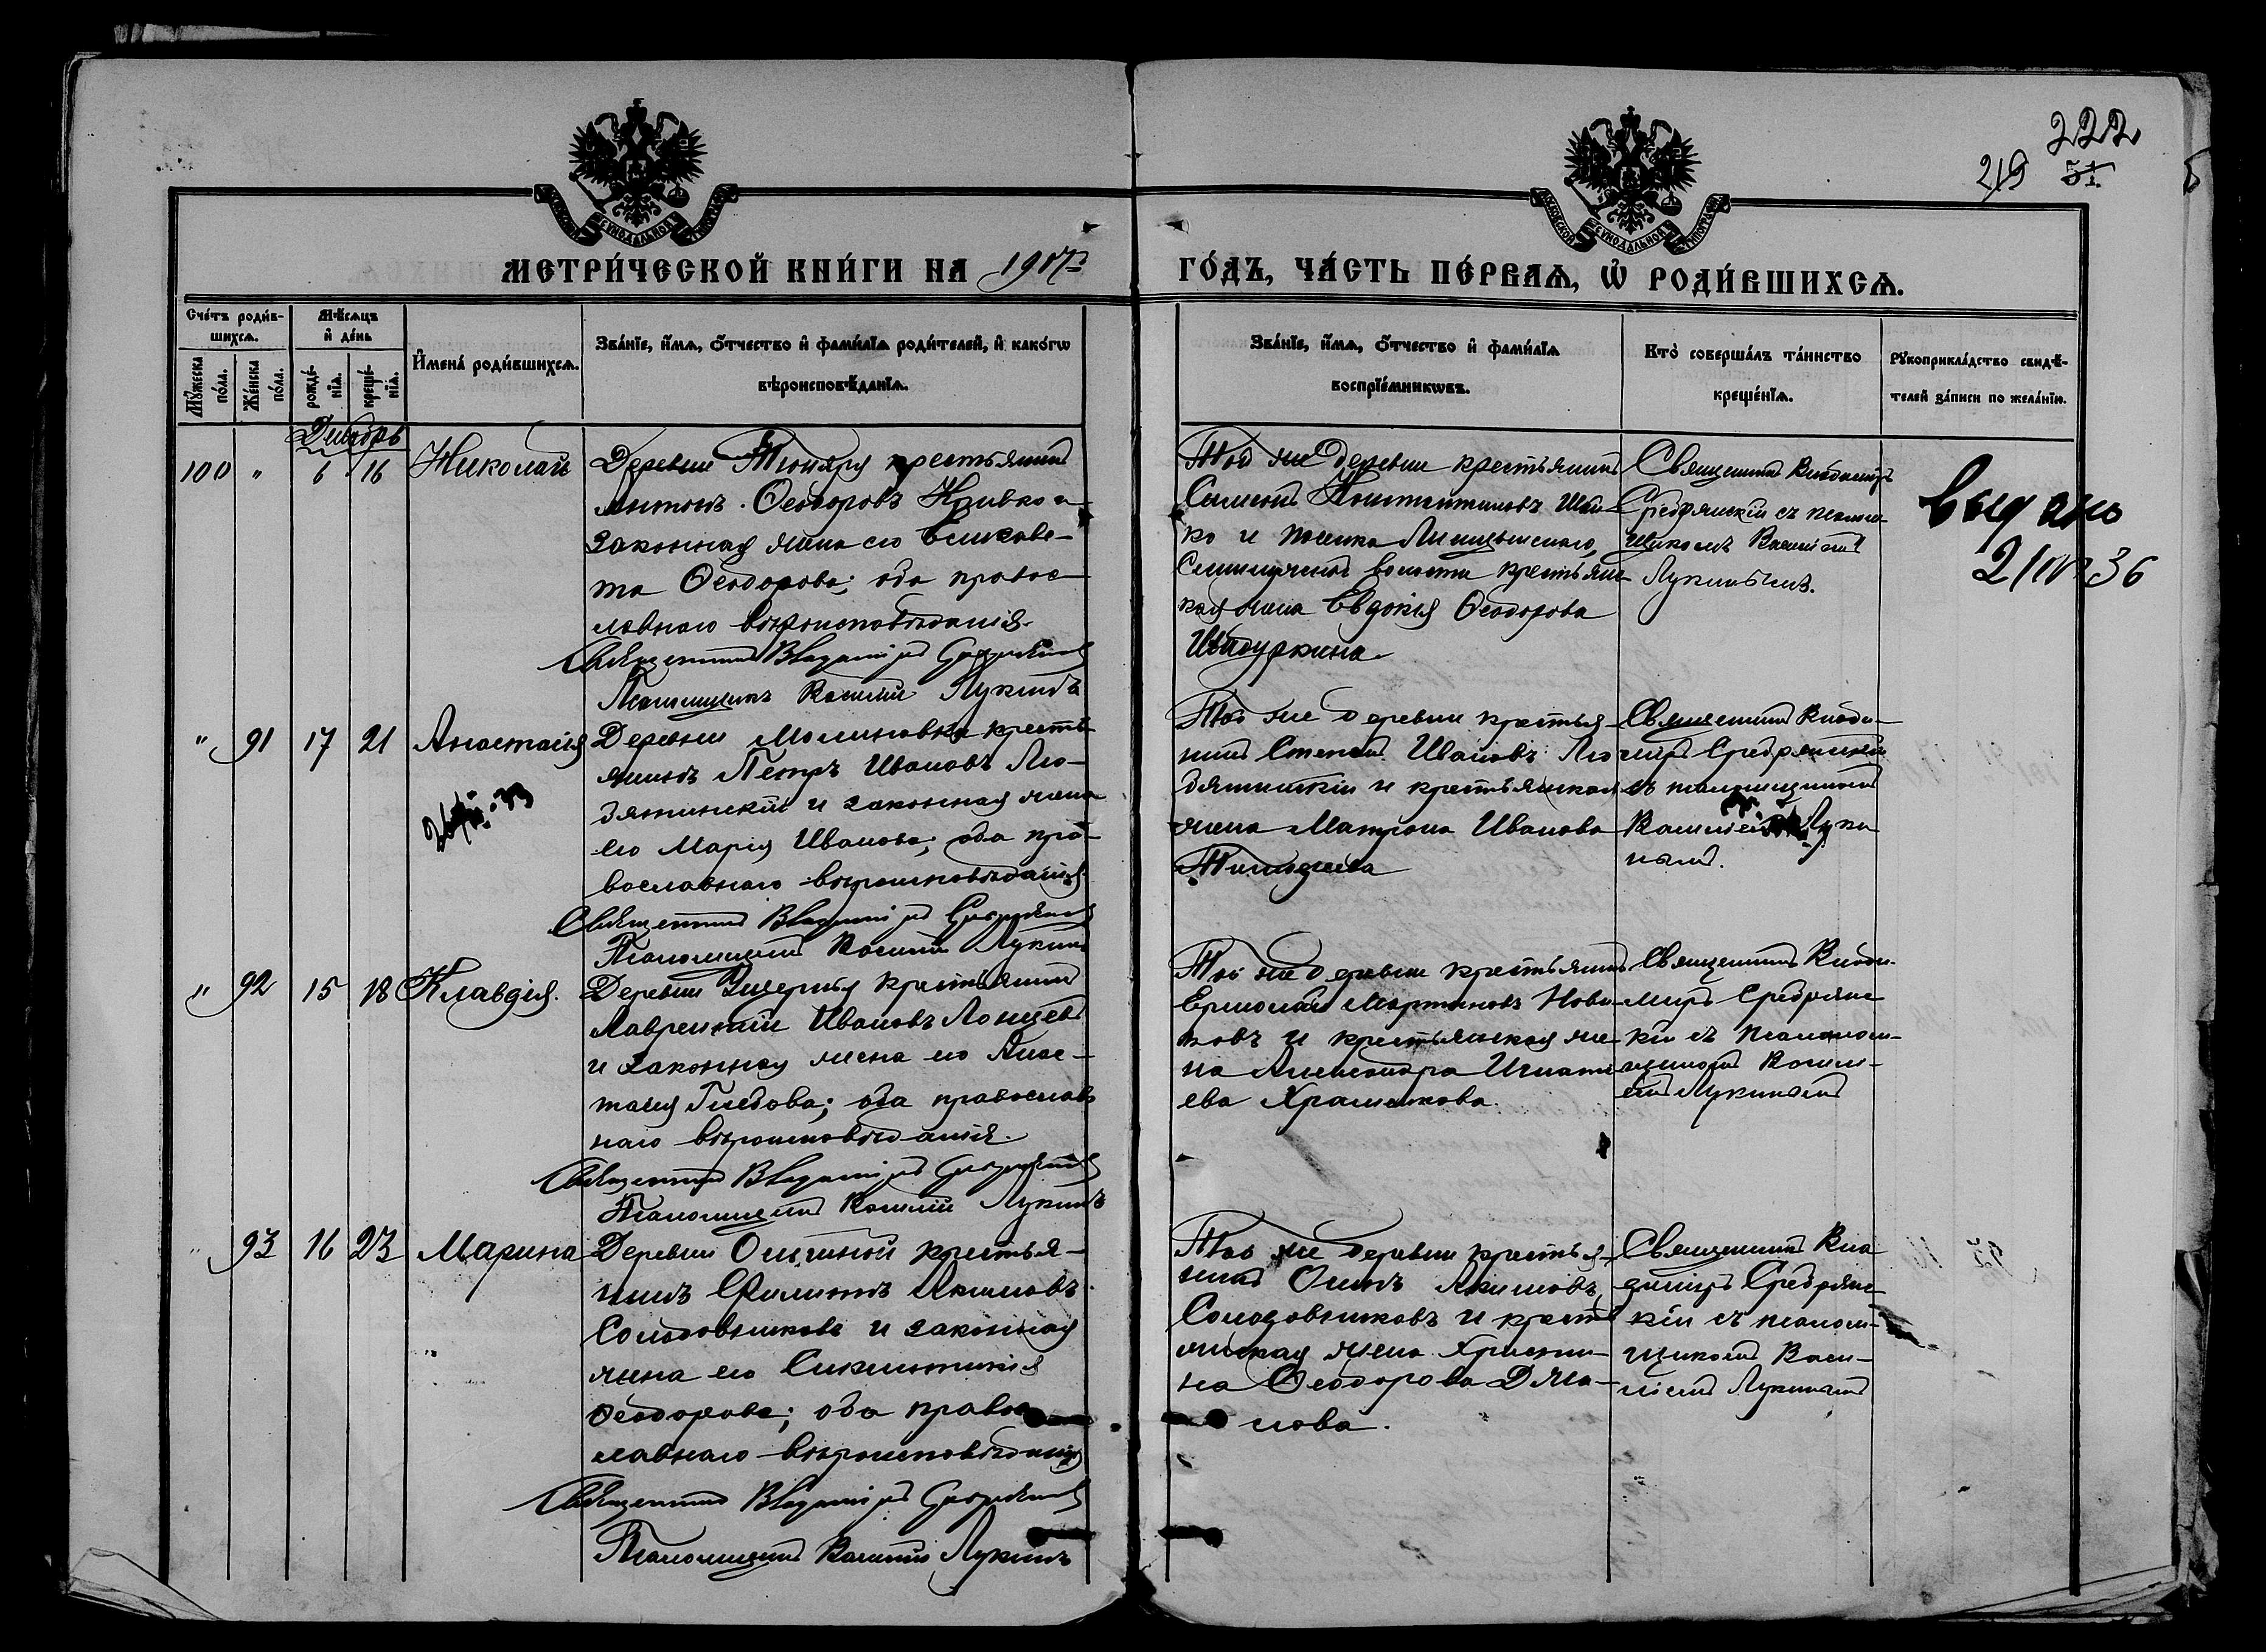 222
219 51.
МОСКОВСКОЙ СѴНОДАЛЬНОЙ ТИПОГРАФІИ
МОСКОВСКОЙ СѴНОДАЛЬНОЙ ТИПОГРАФІИ
МЕТРИ́ЧЕСКОЙ КНИ́ГИ НА 1907 ГО́ДЪ, ЧА́СТЬ ПЕ́РВАѦ, Ѡ РОДИ́ВШИХСѦ.
Сче́тъ роди́в-
шихсѧ.
Мꙋ́жеска по́ла.
Же́нска по́ла.
Мѣ́сѧцъ
и҆ де́нь
рожде́-
нїѧ.
креще́-
нїѧ.
И҆мена̀ роди́вшихсѧ.
Зва́нїе, и҆́мѧ, ѻ҆́тчество и҆ фамѝлїѧ роди́телей, и҆ како́гѡ
вѣроисповѣ́данїѧ.
Зва́нїе, и҆́мѧ, ѻ҆́тчество и҆ фамѝлїѧ
воспрїе́мникѡвъ.
Кто̀ соверша́лъ та́инство
креще́нїѧ.
Рꙋкоприкла́дство свидѣ́-
телей за́писи по жела́нїю.
Декабрь
100 " 6 16 Николай
Деревни крестьянинъ
Антонъ Ѳеодоровъ Кривко и
законная жена его Елисаве-
та Ѳеодорова; оба правос-
лавнаго вѣроисповѣданія.
Священникъ Владиміръ Сребрянскій
Псаломщикъ Василій Лукинъ
Той же деревни крестьянинъ
Симеонъ Константиновъ Шай-
ко и
волости крестьянс-
кая жена Евдокія Ѳеодорова
Священникъ Владиміръ
Сребрянскій съ псаломщ-
щикомъ Василіемъ
Лукинымъ.
Выдано
2/III 36
" 91 17 21 Анастасія
Деревни Малиновки кресть-
янинъ Петръ Ивановъ Лю-
бятинскій и законная жена
его Марія Иванова; оба пра-
вославнаго вѣроисповѣданія
Священникъ Владиміръ Сребрянскій
Псаломщикъ Василій Лукинъ
Той же деревни крестья-
нинъ Степанъ Ивановъ Лю-
бятинскій и крестьянская
жена Матрона Иванова
Тимофеева
Священникъ Влади-
міръ Сребрянскій
съ псаломщикомъ
Василіемъ Луки-
нымъ.
" 92 15 18 Клавдія.
Деревни крестьянинъ
Лаврентій Ивановъ
и законная жена его Анас-
тасія Глебова; оба православ-
наго вѣроисповѣданія.
Священникъ Владиміръ Сребрянскій
Псаломщикъ Василій Лукинъ
Той же деревни крестьянинъ
Ермолай Мартиновъ Нови-
ковъ и крестьянская же-
на Александра Игнать-
ева Храменкова.
Священникъ Влади-
міръ Сребрянс-
кій съ псалом-
щикомъ Васили-
емъ Лукинымъ
" 93 16 23 Марина
Деревни крестья-
нинъ Филиппъ Акимовъ
Солодовниковъ и законная
жена его Синклитикія
Ѳеодорова; оба правос-
лавнаго вѣроисповѣданія
Священникъ Владиміръ Сребрянскій
Псаломщикъ Василій Лукинъ
Той же деревни крестья-
нинъ Осипъ Акимовъ
Солодовниковъ и кресть-
янская жена Христи-
на Ѳеодорова
Священникъ Вла-
диміръ Сребрянс-
кій съ псалом-
щикомъ Васи-
ліемъ Лукинымъ